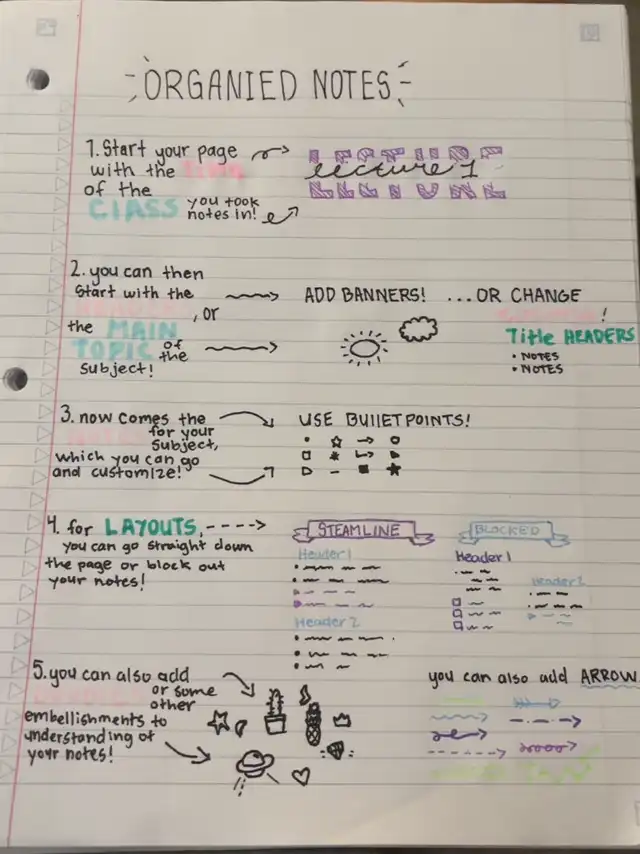 ORGANIED NOTES
1. Start your page
with the
of the
CLASS you took
notes in!
lecture 1
2. you can then
start with the
, or
the MAIN
TOPIC of
the
subject!
ADD BANNERS! ...OR CHANGE
!
Title HEADERS
• NOTES
• NOTES
3. now comes the
for your
subject,
which you can go
and customize!
USE BUllET POINTS!
4. for LAYOUTS,
you can go straight down
the page or block out
your notes!
STEAMLINE
Header 1
Header 2
BLOCKED
Header 1
Header 2
5. you can also add
or some
other
embellishments to
understanding of
your notes!
you can also add ARROW